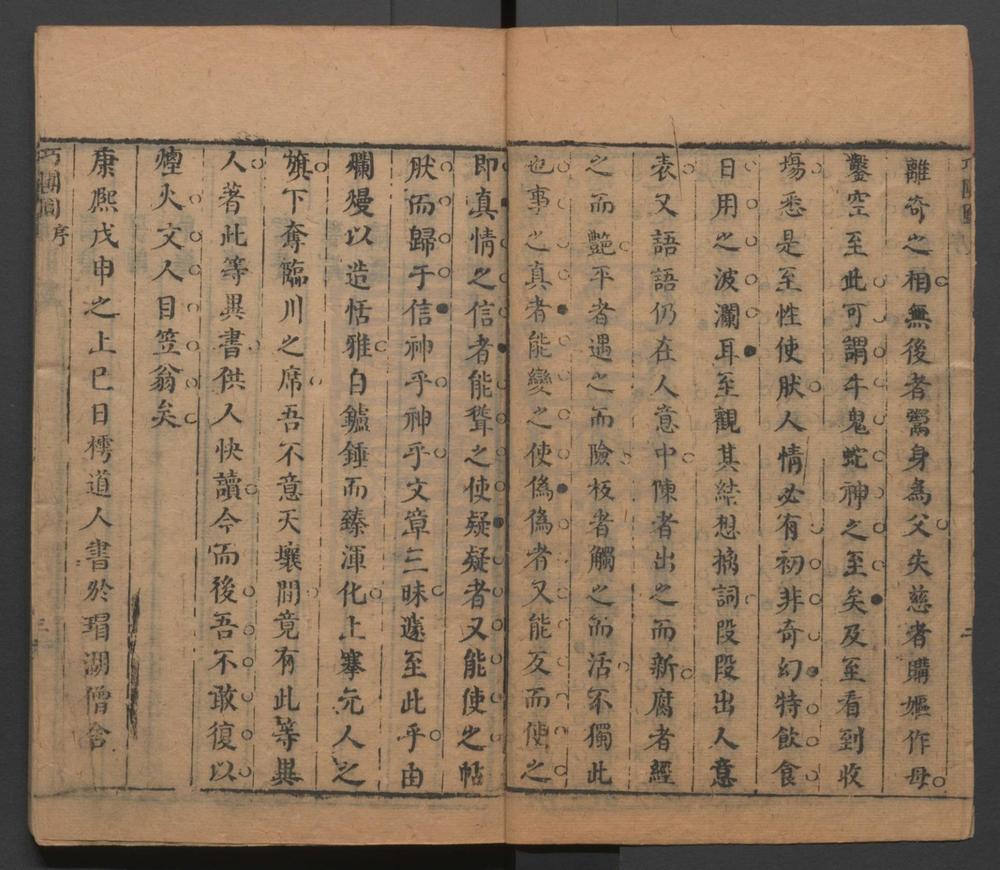 離奇之相無後者鬻身爲父失慈者購嫗作母
鑿空至此可謂牛鬼蛇神之至矣及至看到收
塲悉是至性使肰人情必有初非奇幻特飲食
日用之波瀾耳至觀其結想摛詞段段出人意
表又語語仍在人意中陳者出之而新腐者經
之而艷平者遇之而險板者觸之而活不獨此
也事之真者能變之使僞僞者又能反而使之
即真情之信者能聳之使疑疑者又能使之帖
肰而歸于信神乎神乎文章三昧遂至此乎由
爛熳以造恬雅自鑪錘而臻渾化上搴元人之
旗下奪臨川之席吾不意天壤間竟有此等異
人著此等異書供人快讀今而後吾不敢復以
煙火文人目笠翁矣
康熙戊申之上巳日樗道人書於瑁湖僧舍
巧團圓序
三